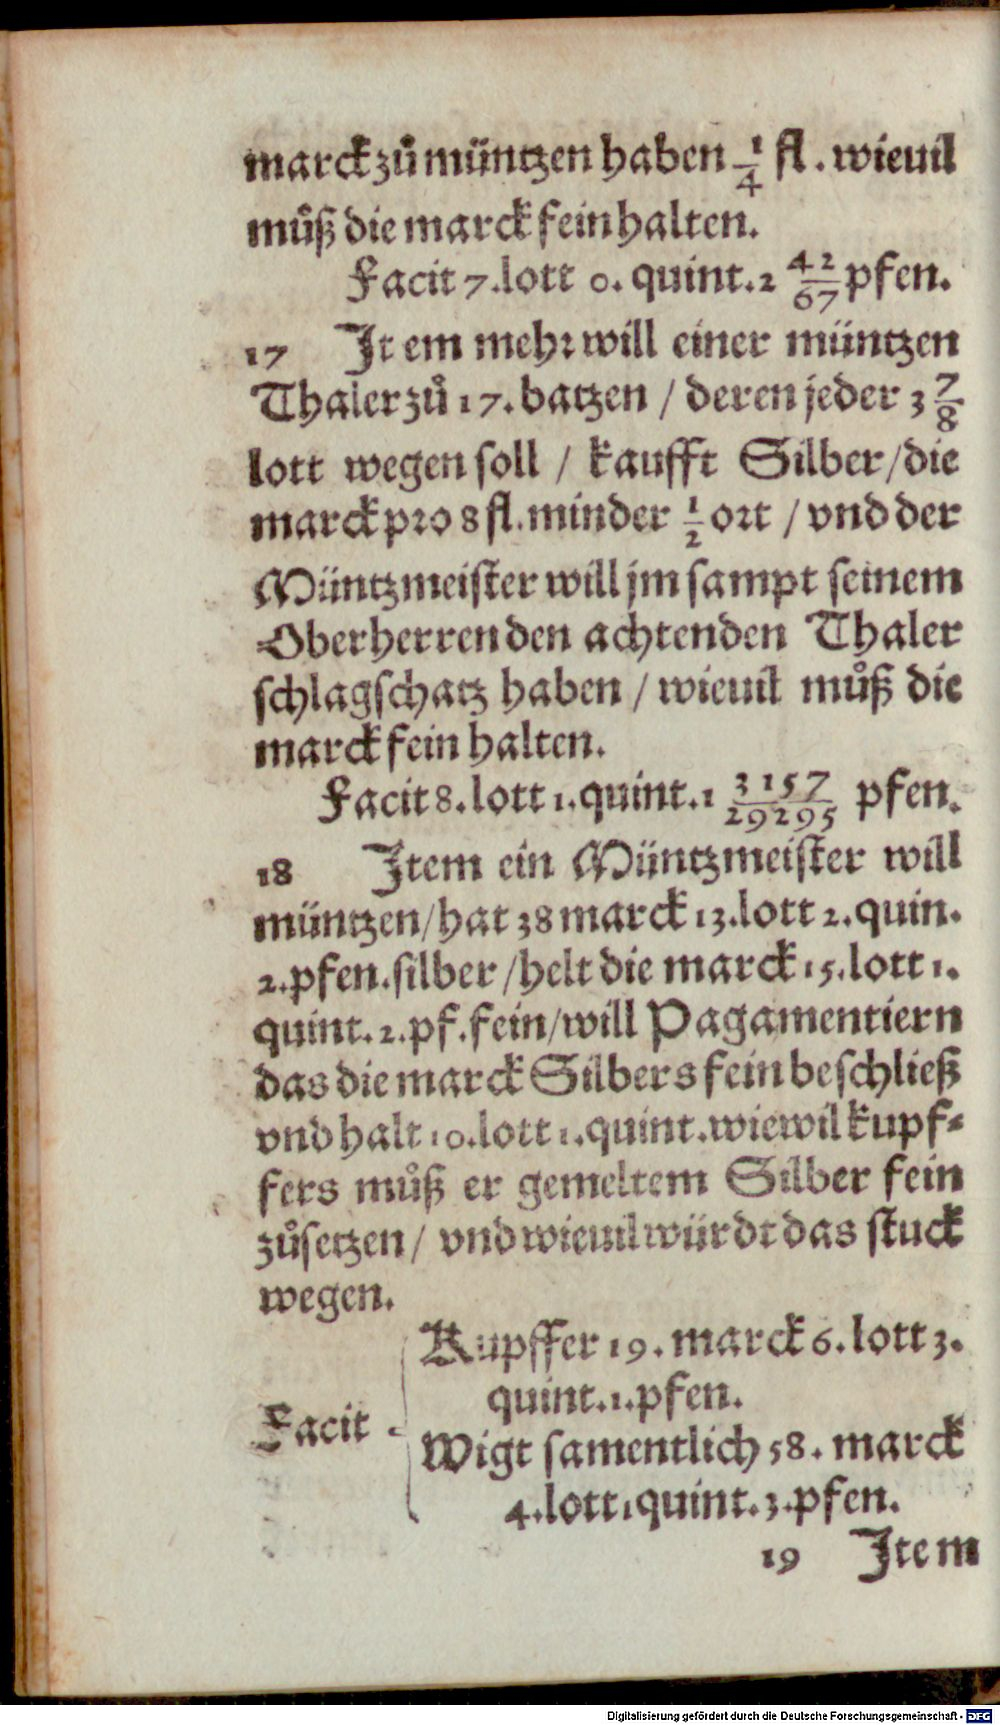 marck zů müntzen haben 1/4 fl. wieuil
můß die marck fein halten.
Facit 7. lott 0. quint. 2 42/67 pfen.
17 Jtem mehr will einer müntzen
Thaler zů 17. batzen / deren jeder 3 7/8
lott wegen soll / kaufft Silber / die
marck pro 8 fl. minder 1/2 ort / vnd der
Müntzmeister will jm sampt seinem
Oberherren den achtenden Thaler
schlagschatz haben / wieuil můß die
marck fein halten.
Facit 8. lott 1. quint. 1 3157/29295 pfen.
18 Jtem ein Müntzmeister will
müntzen / hat 38 marck 13. lott 2. quin.
2. pfen. silber / helt die marck 15. lott 1.
quint. 2. pf. fein / will Pagamentiern
das die marck Silbers fein beschließ
vnd halt 10. lott 1. quint. wiewil kupf⸗
fers můß er gemeltem Silber fein
zůsetzen / vnd wieuil würdt das stuck
wegen.
Kupffer 19. marck 6. lott 3.
quint. 1. pfen.
Facit
Wigt samentlich 58. marck
4. lott 1 quint. 3. pfen.
19 Jtem
Digitalisierung gefördert durch die Deutsche Forschungsgemeinschaft - DFG